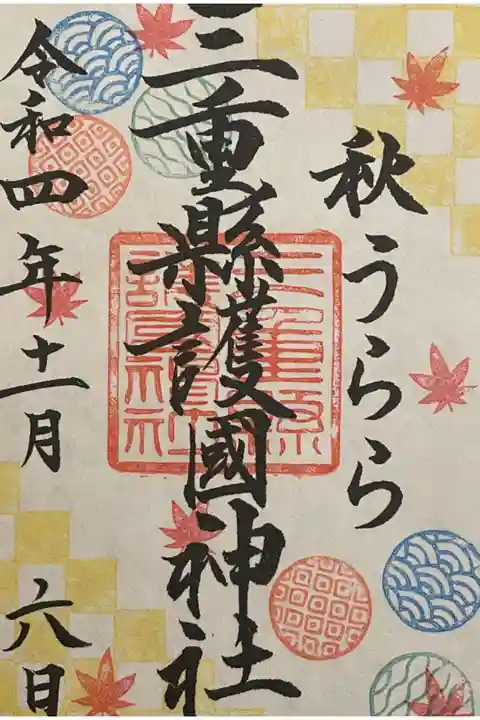 秋うらら
三重縣護國神社
令和四年十一月 六日
三重縣護國神社